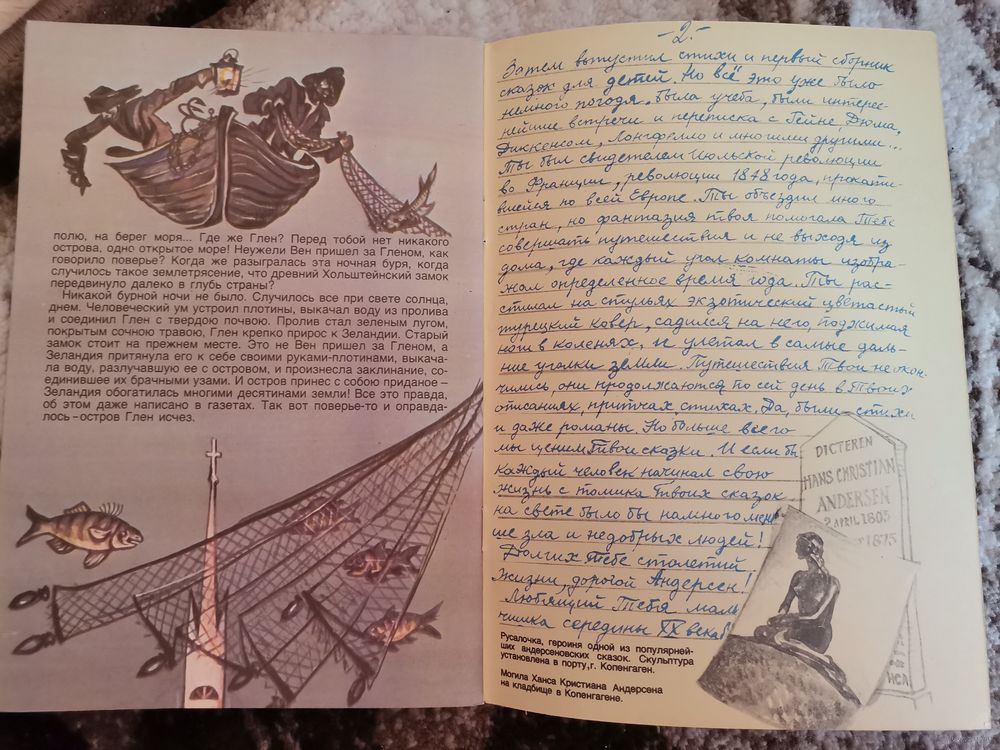 полю, на берег моря... Где же Глен? Перед тобой нет никакого
острова, одно открытое море! Неужели Вен пришел за Гленом, как
говорило поверье? Когда же разыгралась эта ночная буря, когда
случилось такое землетрясение, что древний Хольштейнский замок
передвинуло далеко в глубь страны?
Никакой бурной ночи не было. Случилось все при свете солнца,
днем. Человеческий ум устроил плотины, выкачал воду из пролива
и соединил Глен с твердою почвою. Пролив стал зеленым лугом,
покрытым сочною травою, Глен крепко прирос к Зеландии. Старый
замок стоит на прежнем месте. Это не Вен пришел за Гленом, а
Зеландия притянула его к себе своими руками-плотинами, выкача-
ла воду, разлучавшую ее с островом, и произнесла заклинание, со-
единившее их брачными узами. И остров принес с собою приданое –
Зеландия обогатилась многими десятинами земли! Все это правда,
об этом даже написано в газетах. Так вот поверье-то и оправда-
лось – остров Глен исчез.
-2-
Затем выпустил стихи и первый сборник
сказок для детей. Но всё это уже было
немного погодя. Была учеба, были интерес-
нейшие встречи и переписка с Гейне, Дюма,
Диккенсом, Лонгфелло и многими другими...
Ты был свидетелем Июльской революции
во Франции, революции 1848 года, прокатив-
шейся по всей Европе. Ты объездил много
стран, но фантазия твоя помогала Тебе
совершать путешествия и не выходя из
дома, где каждый угол комнаты изобра-
жал определенное время года. Ты рас-
стилал на стульях экзотический цветастый
турецкий ковер, садился на него, поджимая
ноги в коленях, и улетал в самые даль-
ние уголки земли. Путешествия Твои не окон-
чились, они продолжаются по сей день в Твоих
описаниях, притчах, стихах. Да, были стихи
и даже романы. Но больше всего
мы ценим Твои сказки. И если бы
каждый человек начинал свою
жизнь с томика Твоих сказок
на свете было бы намного мень
ше зла и недобрых людей!
Долгих Тебе столетий
жизни, дорогой Андерсен!
Любящий Тебя маль
чишка середины XX века
DICTEREN
HANS CHRISTIAN
ANDERSEN
2 APRIL 1805
1875
Русалочка, героиня одной из популярней-
ших андерсеновских сказок. Скульптура
установлена в порту, г. Копенгаген.
Могила Ханса Кристиана Андерсена
на кладбище в Копенгагене.